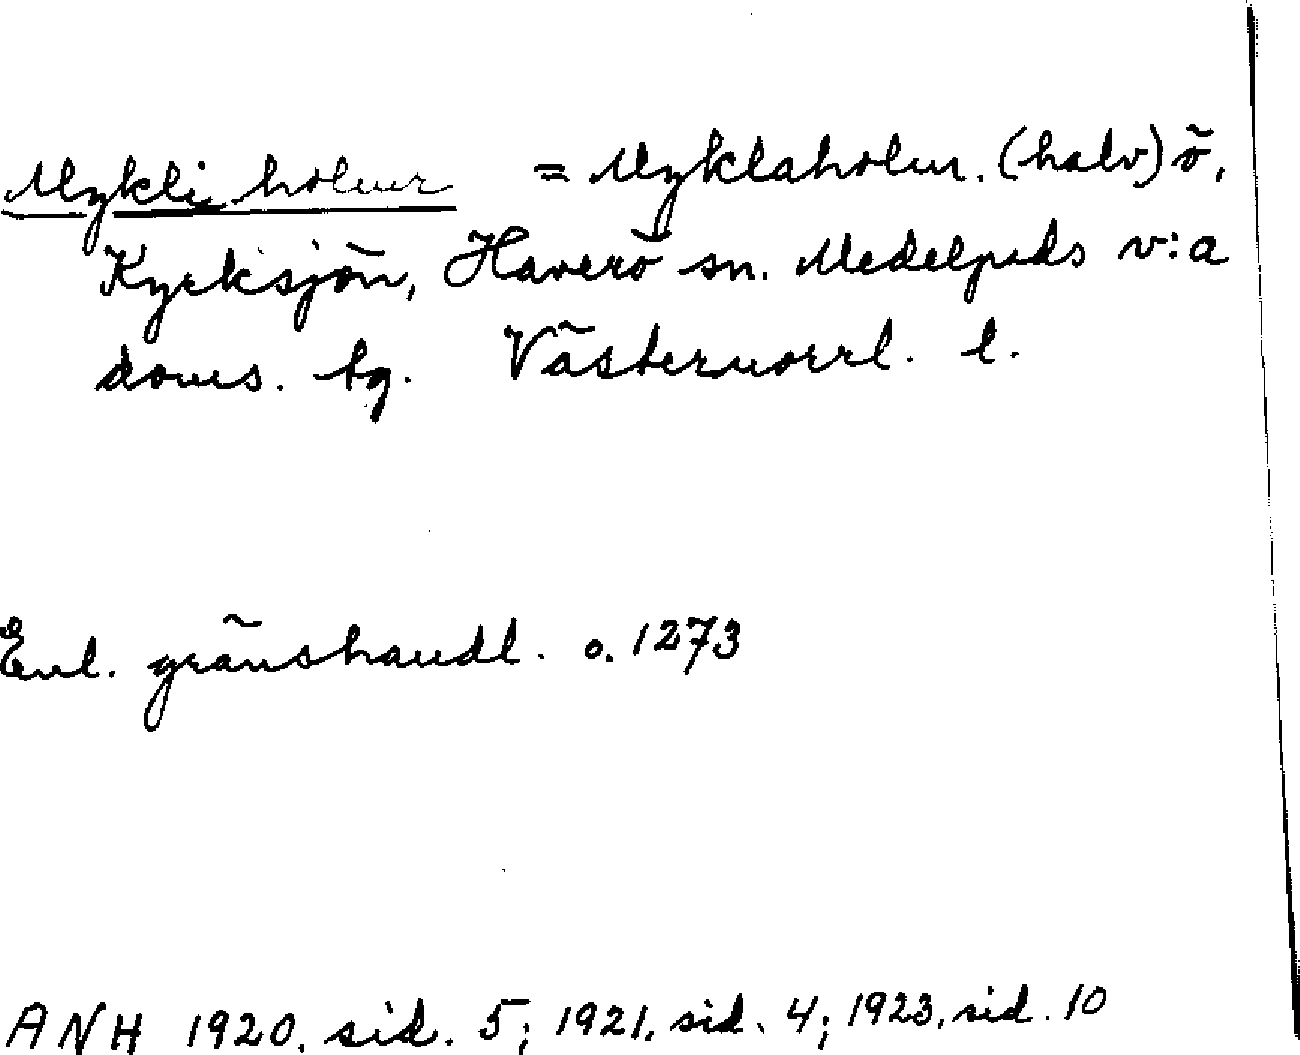 Mykli holmr = Myklaholm. (halv)ö,
Kyrksjön, Haverö sn. Medelpads v:a
doms. tg. Västernorrl. l.
Enl. gränshandl. o. 1273
ANH 1920, sid. 5; 1921, sid. 4; 1923, sid. 10